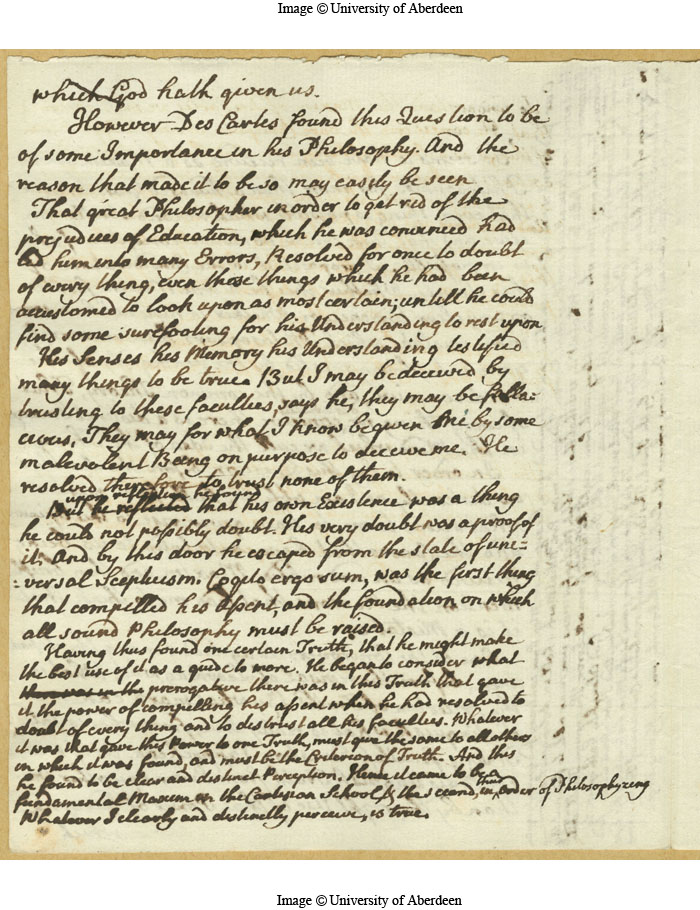 Image © University of Aberdeen
which God hath given us.
However Des Cartes found this Question to be
of some Importance in his Philosophy. And the
reason that made it to be so may easily be seen
That great Philosopher in order to get rid of the
prejudices of Education, which he was convinced had
led him into many Errors, Resolved for once to doubt
of every thing, even those things which he had been
accustomed to look upon as most certain; untill he could
find some sure footing for his Understanding to rest upon
His Senses his Memory his Understanding testified
many things to be true. But I may be deceived by
trusting to these faculties, says he, they may be falla-
cious, They may for what I know be given me by some
malevolent Being on purpose to deceive me. He
resolved therefore to trust none of them.
upon reflection he found
But he reflected that his own Existence was a thing
he could not possibly doubt. His very doubt was a proof of
it. And by this door he escaped from the state of uni-
-versal Scepticism. Cogito ergo sum, was the first thing
that compelled his assent, and the foundation on which
all sound Philosophy must be raised.
Having thus found one certain Truth, that he might make
the best use of it as a guide to more. He began to consider what
there was in the prerogative there was in this Truth that gave
it the power of compelling his assent when he had resolved to
doubt of every thing and to distrust all his faculties. Whatever
it was that gave this Power to one Truth, must give the same to all others
in which it was found, and must be the Criterion of Truth. And this
he found to be clear and distinct Perception. Hence it came to be a
fundamental Maxim in the Cartesian School, & the second, in their order of Philosophyzing
Whatever I clearly and distinctly perceive, is true.
Image © University of Aberdeen